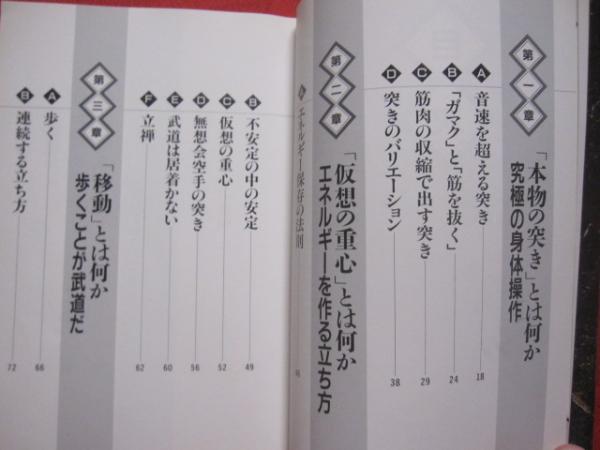 第一章
「本物の突き」とは何か
究極の身体操作
A 音速を超える突き 18
B 「ガマク」と「筋を抜く」 24
C 筋肉の収縮で出す突き 29
D 突きのバリエーション 38
第二章
「仮想の重心」とは何か
エネルギーを作る立ち方
エネルギー保存の法則
B 不安定の中の安定 49
C 仮想の重心 52
D 無想会空手の突き 56
E 武道は居着かない 60
F 立禅 62
第三章
「移動」とは何か
歩くことが武道だ
A 歩く 66
B 連続する立ち方 72